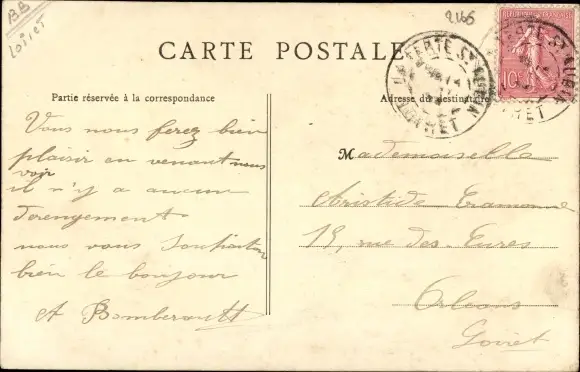 BB
Loiret
2165
CARTE POSTALE
LA FERTE ST AUBIN
LOIRET
REPUBLIQUE FRANÇAISE
10
Partie réservée à la correspondance
Adresse du destinataire
Vous nous ferez bien
plaisir en venant nous
voir
il n'y a aucun
derengement
nous vous souhaiton
bien le bonjour
A Bomberault
Mademoiselle
Aristide
19, rue des Cures
Orleans
Loiret